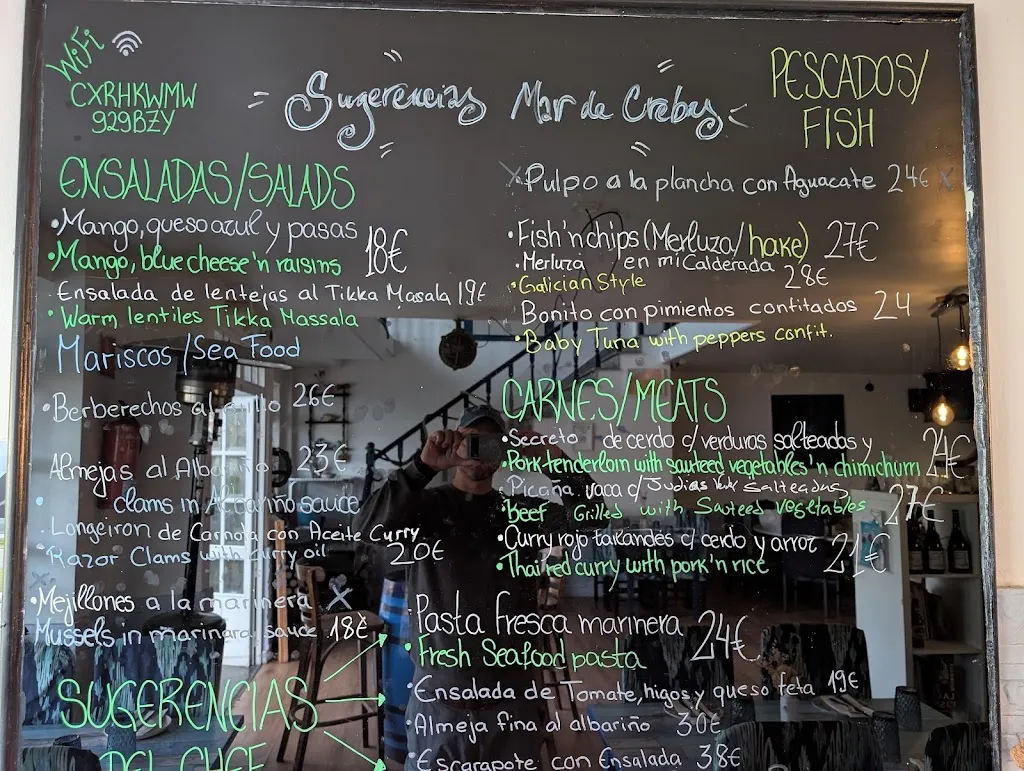 WiFi
CXRHKWMW
929BZY
Sugerencias Mar de Crebas
ENSALADAS/SALADS
•Mango, queso azul y pasas 18€
•Mango, blue cheese 'n raisins
Ensalada de lentejas al Tikka Masala 19€
•Warm lentiles Tikka Massala
Mariscos/Sea Food
•Berberechos al 26€
Almejas al Albariño 23€
• clams in Albariño sauce
•Longeiron de Carnota con Aceite Curry
•Razor Clams with curry oil 20€
x
•Mejillones a la marinera x
Mussels in marinara sauce 18€
SUGERENCIAS
DEL CHEF
PESCADOS/
FISH
x Pulpo a la plancha con Aguacate 24€ x
•Fish 'n chips (Merluza/hake) 27€
•Merluza en mi Calderada
•Galician Style 28€
Bonito con pimientos confitados 24
•Baby Tuna with peppers confit.
CARNES/MEATS
•Secreto de cerdo c/verduras salteadas y 24€
•Pork tenderloin with sauteed vegetables 'n chimichurri
Picaña vaca c/Judias salteadas 27€
•Beef Grilled with Sauteed vegetables
•Curry rojo tailandés c/cerdo y arroz 21€
•Thai red curry with pork 'n rice
Pasta fresca marinera 24€
•Fresh Seafood pasta
•Ensalada de Tomate, higos y queso feta 19€
•Almeja fina al albariño 30€
•Escarapote con Ensalada 38€